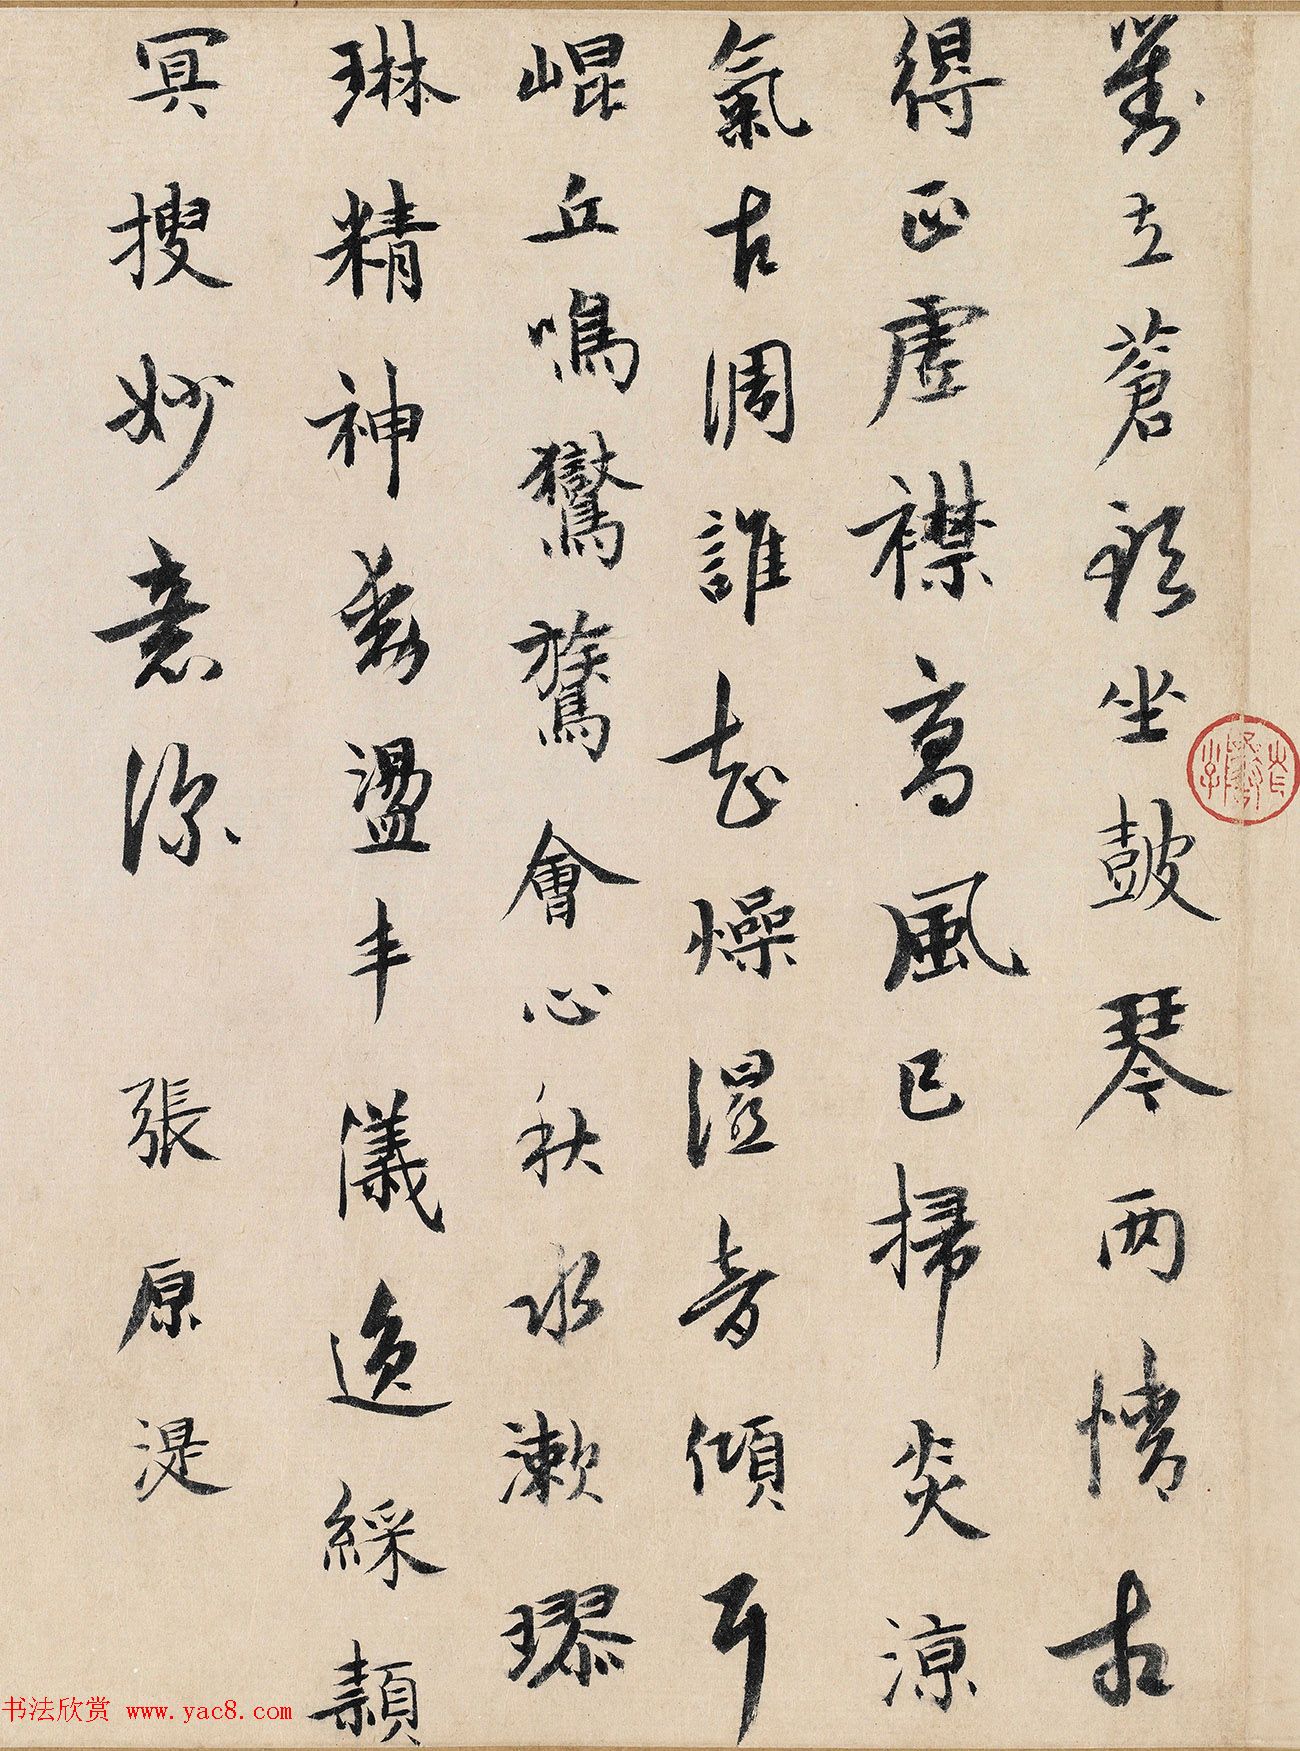 對立蒼頭坐鼓琴兩情相
得正虛襟高風已掃炎涼
氣古調誰知燥溼音傾耳
崐丘鳴鸑鷟會心秋水漱璆
琳精神藹盪丰儀逸綵穎
冥搜妙意深 張原湜
书法欣赏 www.yac8.com